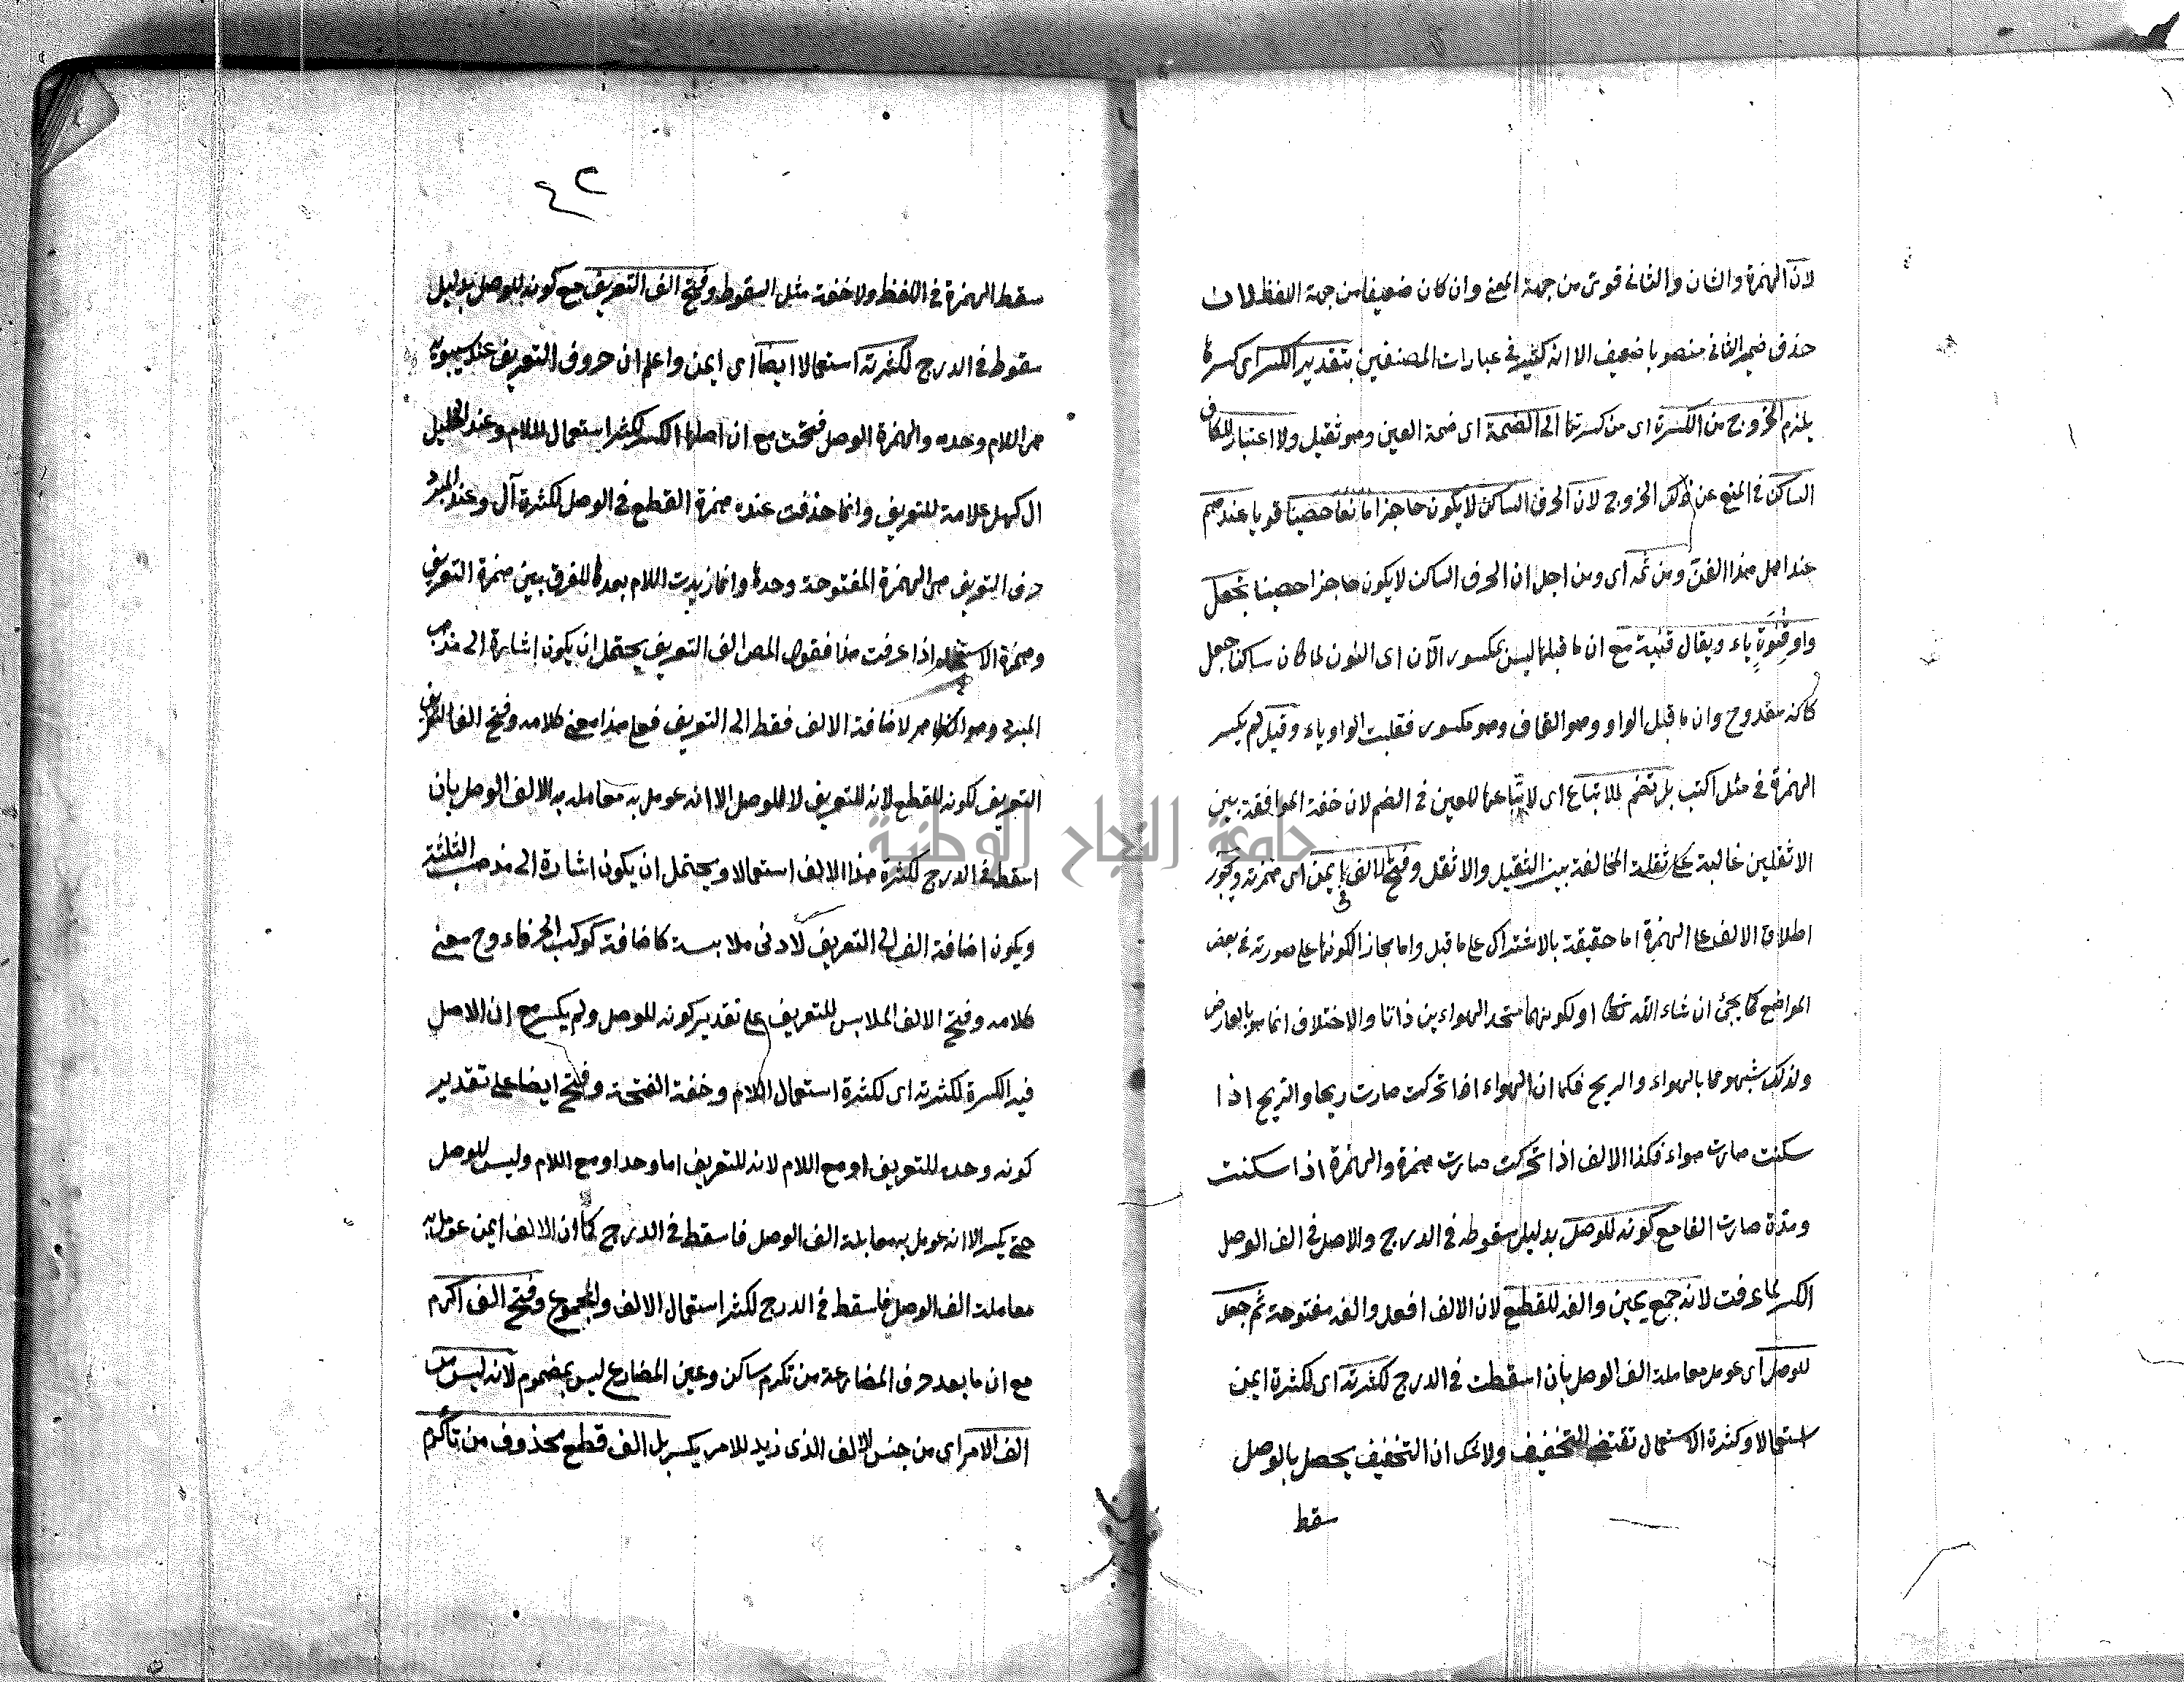 لان الهمزة والشان والثانى قوى من جهة المعنى وان كان ضعيفا من جهة اللفظ لان
حذف ضمير الثانى منصوبا ضعيف الا انه كثير فى عبارات المصنفين بتقدير الكسر اى كسرها
يلزم الخروج من الكسرة اى من كسرتها الى الضمة اى ضمة العين وهو ثقيل ولا اعتبار للكاف
الساكن فى المنع عن ذلك الخروج لان الحرف الساكن لا يكون حاجزا مانعا حصينا قويا عندهم
عند اهل هذا الفن ومن ثمه اى ومن اجل ان الحرف الساكن لا يكون حاجزا حصينا يجعل
واو قنوة ياء ويقال قنية مع ان ما قبلها ليس بمكسور الآن اى النون لما كان ساكنا جعل
كانه مقدوح وان ما قبل الواو وهو القاف وهو مكسور فقلبت الواو ياء وقيل لم يكسر
الهمزة فى مثل اكتب بل تضم للاتباع اى لاتباعها للعين فى الضم لان خفة الموافقة بين
الاثقلين غالبة على ثقلة المخالفة بين الثقيل والاثقل وفتح الف ايمن اى همزته ويجوز
اطلاق الالف على الهمزة اما حقيقة بالاشتراك على ما قبل واما مجازا لكونها على صورته فى بعض
المواضع كما يجئ ان شاء الله تعالى او لكونهما متحد الهواءين ذاتا والاختلاف انما هو بالعارض
ولذلك شبهوهما بالهواء والريح فكما ان الهواء اذا تحركت صارت ريحا والريح اذا
سكنت صارت هواء فكذا الالف اذا تحركت صارت همزة والهمزة اذا سكنت
ومدة صارت الفا مع كونه للوصل بدليل سقوطه فى الدرج والاصل فى الف الوصل
الكسر لما عرفت لانه جمع يمين والفه للقطع لان الالف افعل والفه مفتوحة ثم جعل
للوصل اى عومل معاملة الف الوصل بان اسقطت فى الدرج لكثرته اى لكثرة ايمن
استعمالا وكثرة الاستعمال تقتضى التخفيف ولا شك ان التخفيف يحصل بالوصل
سقط
٤٢
سقط الهمزة فى اللفظ ولا خفة مثل السقوط وفتح الف التعريف مع كونه للوصل بدليل
سقوط فى الدرج لكثرته استعمالا ايضا اى ايمن واعلم ان حروف التعريف عند سيبويه
هى اللام وحده والهمزة الوصل فتحت مع ان اصلها الكسر لكثر استعمال اللام وعند الخليل
ال كهل علامة للتعريف وانما حذفت عنده همزة القطع فى الوصل لكثرة آل وعند المبرد
حرف التعريف هى الهمزة المفتوحة وحدها وانما زيدت اللام بعدها للفرق بين همزة التعريف
وهمزة الاستفهام اذا عرفت هذا فقول المص الف التعريف يحتمل ان يكون اشارة الى مذهب
المبرد وهو الظاهر لاضافة الالف فقط الى التعريف فعلى هذا معنى كلامه وفتح الف التعريف
التعريف لكونه للقطع لانه للتعريف لا للوصل الا انه عومل به معاملة الالف الوصل بان
اسقط فى الدرج لكثرة هذا الالف استعمالا ويحتمل ان يكون اشارة الى مذهب الثلثة
ويكون اضافة الف الى التعريف لادنى ملابسة كاضافة كوكب الخرقاء وح معنى
كلامه وفتح الالف الملابس للتعريف على تقدير كونه للوصل ولم يكسر مع ان الاصل
فيه الكسرة لكثرته اى لكثرة استعمال اللام وخفة الفتحة وفتح ايضا على تقدير
كونه وحده للتعريف او مع اللام لانه للتعريف اما وحدا ومع اللام وليس للوصل
حتى يكسر الا انه عومل به معاملة الف الوصل فاسقط فى الدرج كما ان الالف ايمن عومل به
معاملة الف الوصل فاسقط فى الدرج لكثر استعمال الالف والمجموع وفتح الف اكرم
مع ان ما بعد حرف المضارعة من تكرم ساكن وعين المضارع ليس بمضموم لانه ليس من
الف الامر اى من جنس الالف الذى زيد للامر يكسر بل الف قطع محذوف من تأكرم
جامعة النجاح الوطنية